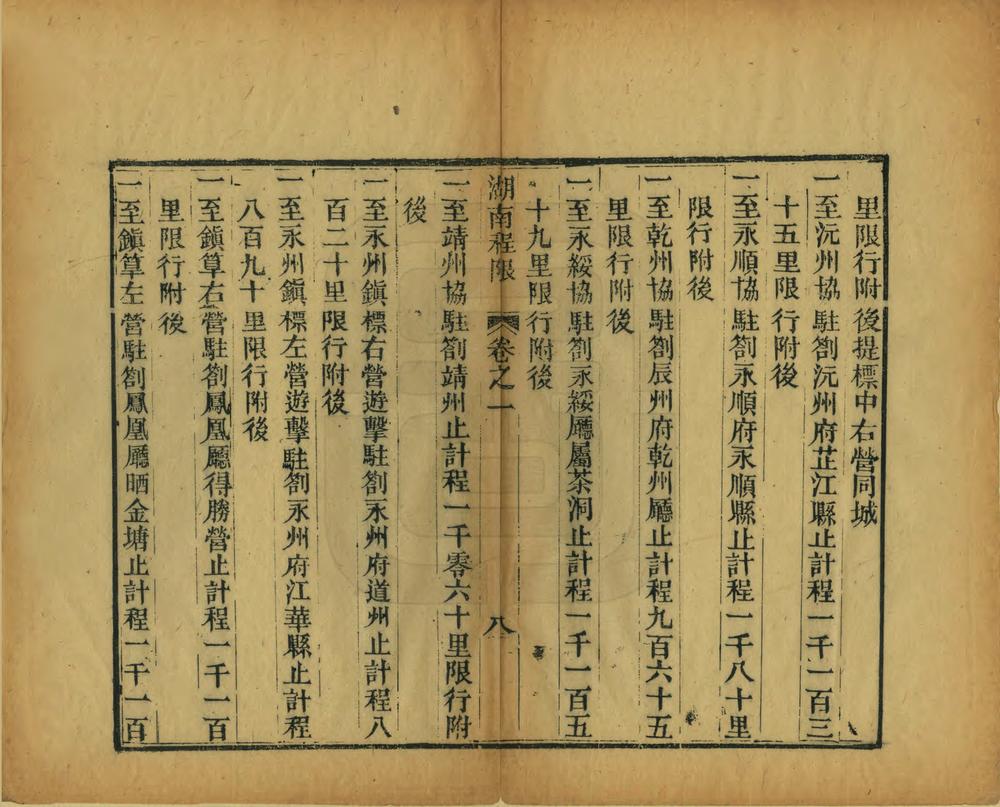 里限行附後提標中右營同城
一至沅州協駐劄沅州府芷江縣止計程一千一百三
十五里限行附後
一至永順協駐劄永順府永順縣止計程一千八十里
限行附後
一至乾州協駐劄辰州府乾州廳止計程九百六十五
里限行附後
一至永綏協駐劄永綏廳屬茶洞止計程一千一百五
十九里限行附後
湖南程限 卷之一 八
一至靖州協駐劄靖州止計程一千零六十里限行附
後
一至永州鎭標右營遊擊駐劄永州府道州止計程八
百二十里限行附後
一至永州鎭標左營遊擊駐劄永州府江華縣止計程
八百九十里限行附後
一至鎭筸右營駐劄鳳凰廳得勝營止計程一千一百
里限行附後
一至鎭筸左營駐劄鳳凰廳晒金塘止計程一千一百